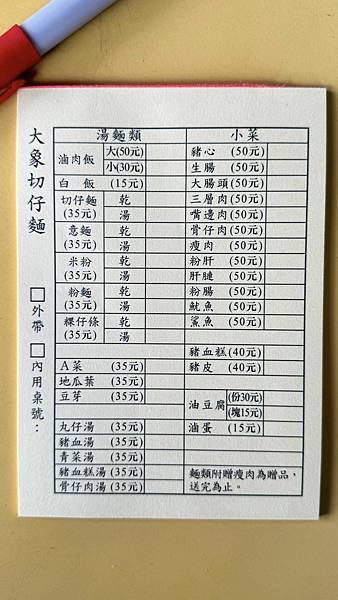 大象切仔麵
□外帶 □內用桌號：
湯麵類
滷肉飯 大(50元)
小(30元)
白飯 (15元)
切仔麵 (35元) 乾
湯
意麵 (35元) 乾
湯
米粉 (35元) 乾
湯
粉麵 (35元) 乾
湯
粿仔條 (35元) 乾
湯
A菜 (35元)
地瓜葉 (35元)
豆芽 (35元)
丸仔湯 (35元)
豬血湯 (35元)
青菜湯 (35元)
豬血糕湯 (35元)
骨仔肉湯 (35元)
小菜
豬心 (50元)
生腸 (50元)
大腸頭 (50元)
三層肉 (50元)
嘴邊肉 (50元)
骨仔肉 (50元)
瘦肉 (50元)
粉肝 (50元)
肝腱 (50元)
粉腸 (50元)
魷魚 (50元)
鯊魚 (50元)
豬血糕 (40元)
豬皮 (40元)
油豆腐 (份30元)
(塊15元)
滷蛋 (15元)
麵類附贈瘦肉為贈品，
送完為止。